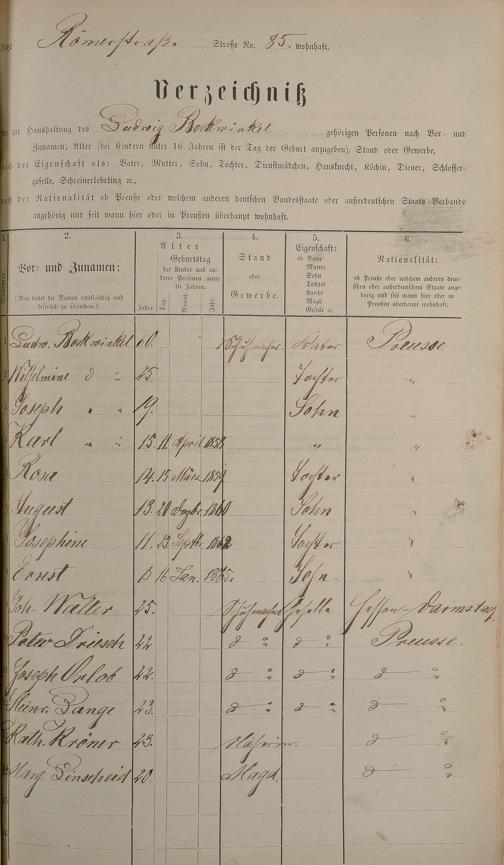 Römerstraße Straße No. 85. wohnhaft.
Verzeichniß
zur Haushaltung des Ludwig Bockwinkel gehörigen Personen nach Vor- und
Zunamen, Alter (bei Kindern unter 16 Jahren ist der Tag der Geburt anzugeben), Stand oder Gewerbe,
nach der Eigenschaft als: Vater, Mutter, Sohn, Tochter, Dienstmädchen, Hausknecht, Köchin, Diener, Schlosser-
geselle, Schreinerlehrling ꝛc.,
nach der Nationalität ob Preuße oder welchem anderen deutschen Bundesstaate oder außerdeutschen Staats-Verbande
angehörig und seit wann hier oder in Preußen überhaupt wohnhaft.
1. 2. 3. 4. 5. 6.
Vor- und Zunamen:
(Man bittet die Namen vollständig und
leserlich zu schreiben.)
Alter
Jahre
Geburtstag
der Kinder und an-
derer Personen unter
16 Jahren.
Tag. Monat. Jahr.
Stand
oder
Gewerbe.
Eigenschaft:
ob Vater
Mutter
Sohn
Tochter
Knecht
Magd
Geselle ꝛc.
Nationalität:
ob Preuße oder welchem anderen deut-
schen oder außerdeutschen Staate ange-
hörig und seit wann hier oder in
Preußen überhaupt wohnhaft.
Ludw. Bockwinkel Schuhmacher. Vater Preusse
Wilhelmine d " 25. Tochter "
Joseph " " 19. Sohn "
Karl " " 15 11 April " "
Rosa 14. 15 März 1859 Tochter "
August 13. 20 1860 Sohn "
Josephine 11. 23. Septbr. 1862 Tochter "
Ernst 16 Jan. 1865. Sohn. "
Joh. Walter 25. Schuhmacher Geselle Hessen-Darmstad
Peter Driesch 22 d " d " Preusse.
Joseph 22. d " d " d "
Heinr. Lange 23. d " d " d "
Kath. Kröner 23. Näherin. d "
Marg. Linscheid 20. Magd. d "